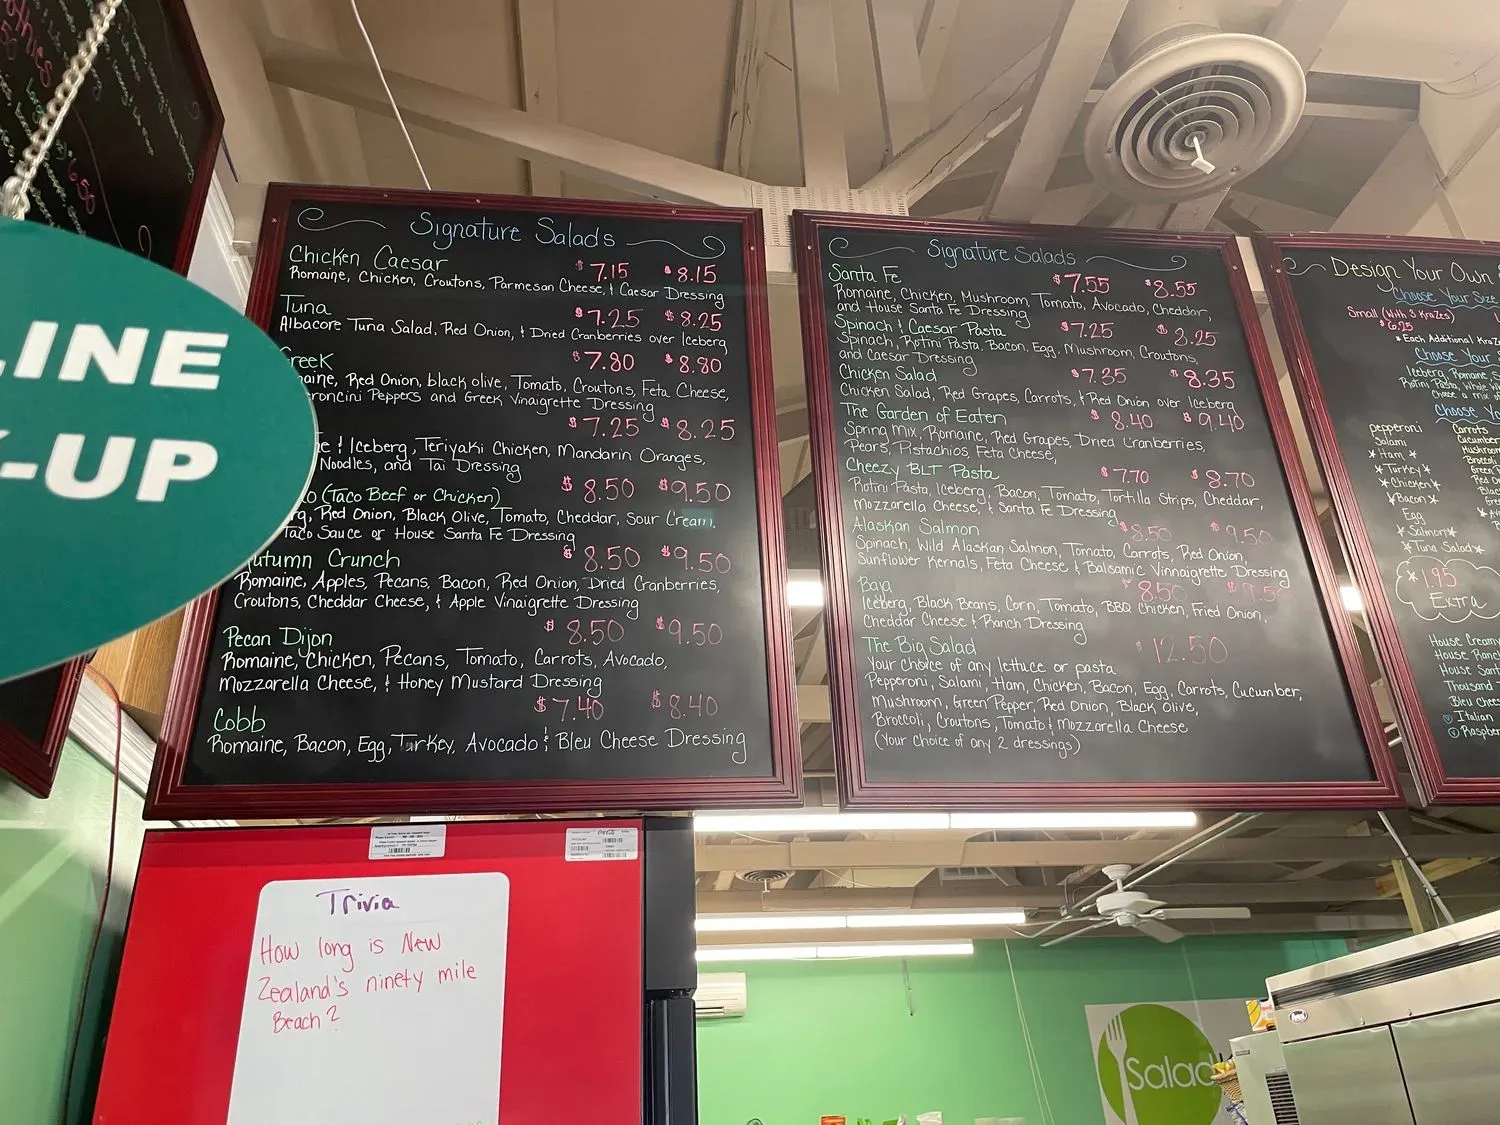 LINE
K-UP
Signature Salads
Chicken Caesar $7.15 $8.15
Romaine, Chicken, Croutons, Parmesan Cheese, & Caesar Dressing
Tuna $7.25 $8.25
Albacore Tuna Salad, Red Onion, & Dried Cranberries over Iceberg
Greek $7.80 $8.80
Red Onion, black olive, Tomato, Croutons, Feta Cheese,
Peppers and Greek Vinaigrette Dressing
$7.25 $8.25
& Iceberg, Teriyaki Chicken, Mandarin Oranges,
Noodles, and Tai Dressing
(Taco Beef or Chicken) $8.50 $9.50
Red Onion, Black Olive, Tomato, Cheddar, Sour Cream,
Taco Sauce or House Santa Fe Dressing
Autumn Crunch $8.50 $9.50
Romaine, Apples, Pecans, Bacon, Red Onion, Dried Cranberries,
Croutons, Cheddar Cheese, & Apple Vinaigrette Dressing
Pecan Dijon $8.50 $9.50
Romaine, Chicken, Pecans, Tomato, Carrots, Avocado,
Mozzarella Cheese, & Honey Mustard Dressing
Cobb $7.40 $8.40
Romaine, Bacon, Egg, Turkey, Avocado & Bleu Cheese Dressing
Signature Salads
Santa Fe $7.55 $8.55
Romaine, Chicken, Mushroom, Tomato, Avocado, Cheddar,
and House Santa Fe Dressing
Spinach & Caesar Pasta $7.25 $8.25
Spinach, Rotini Pasta, Bacon, Egg, Mushroom, Croutons,
and Caesar Dressing
Chicken Salad $7.35 $8.35
Chicken Salad, Red Grapes, Carrots, & Red Onion over Iceberg
The Garden of Eaten $8.40 $9.40
Spring Mix, Romaine, Red Grapes, Dried Cranberries,
Pears, Pistachios, Feta Cheese,
Cheezy BLT Pasta $7.70 $8.70
Rotini Pasta, Iceberg, Bacon, Tomato, Tortilla Strips, Cheddar,
Mozzarella Cheese, & Santa Fe Dressing
Alaskan Salmon $8.50 $9.50
Spinach, Wild Alaskan Salmon, Tomato, Carrots, Red Onion,
Sunflower Kernals, Feta Cheese & Balsamic Vinnaigrette Dressing
Baja $8.50 $9.50
Iceberg, Black Beans, Corn, Tomato, BBQ Chicken, Fried Onion,
Cheddar Cheese & Ranch Dressing
The Big Salad $12.50
Your choice of any lettuce or pasta
Pepperoni, Salami, Ham, Chicken, Bacon, Egg, Carrots, Cucumber,
Mushroom, Green Pepper, Red Onion, Black Olive,
Broccoli, Croutons, Tomato & Mozzarella Cheese
(Your choice of any 2 dressings)
Design Your Own
Choose Your Size
Small (With 3 KraZes)
$6.25
*Each Additional KraZe
Choose Your
Iceberg, Romaine, S
Rotini Pasta, Whole W
Choose a mix of
Choose Yo
pepperoni Carrots
Salami Cucumber
*Ham* Mushroom
*Turkey* Broccoli
*Chicken* Green P
*Bacon* Red O
Egg Black
*Salmon* Gree
*Tuna Salad*
*1.95
Extra
House Creamy
House Ranch
House Sant
Thousand I
Bleu Chees
Italian
Raspber
Trivia
How long is New
Zealand's ninety mile
Beach?
Salad